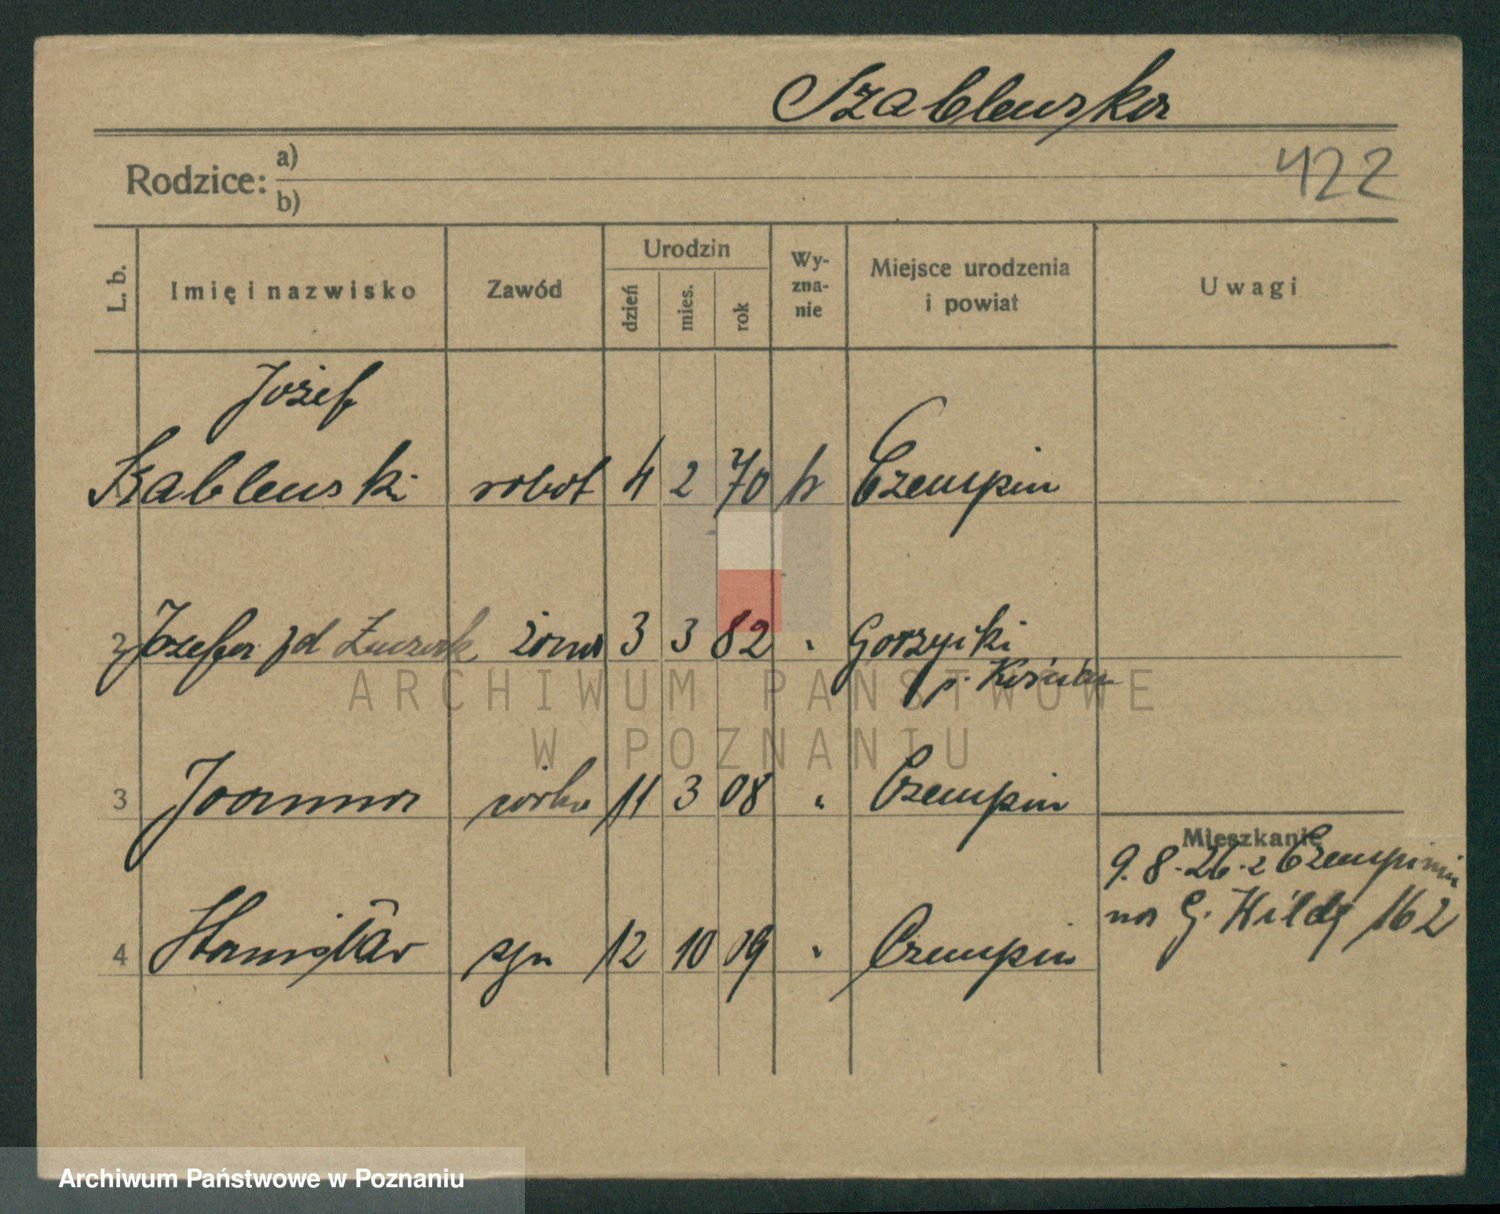 Szablewska
Rodzice: a)
b)
422
L. b. Imię i nazwisko Zawód Urodzin dzień mies. rok Wy-zna-nie Miejsce urodzenia i powiat Uwagi
Józef
Szablewski robot 4 2 70 k Czempin
2 Józefa zd żona 3 3 82 " Gorzyiki
p. Kościan
ARCHIWUM PAŃSTWOWE
W POZNANIU
3 Joanna córka 11 3 08 " Czempin
Mieszkanie
9.8.26 z Czempinia
na G. Wildę 162
4 Stanisław syn 12 10 09 " Czempin
Archiwum Państwowe w Poznaniu